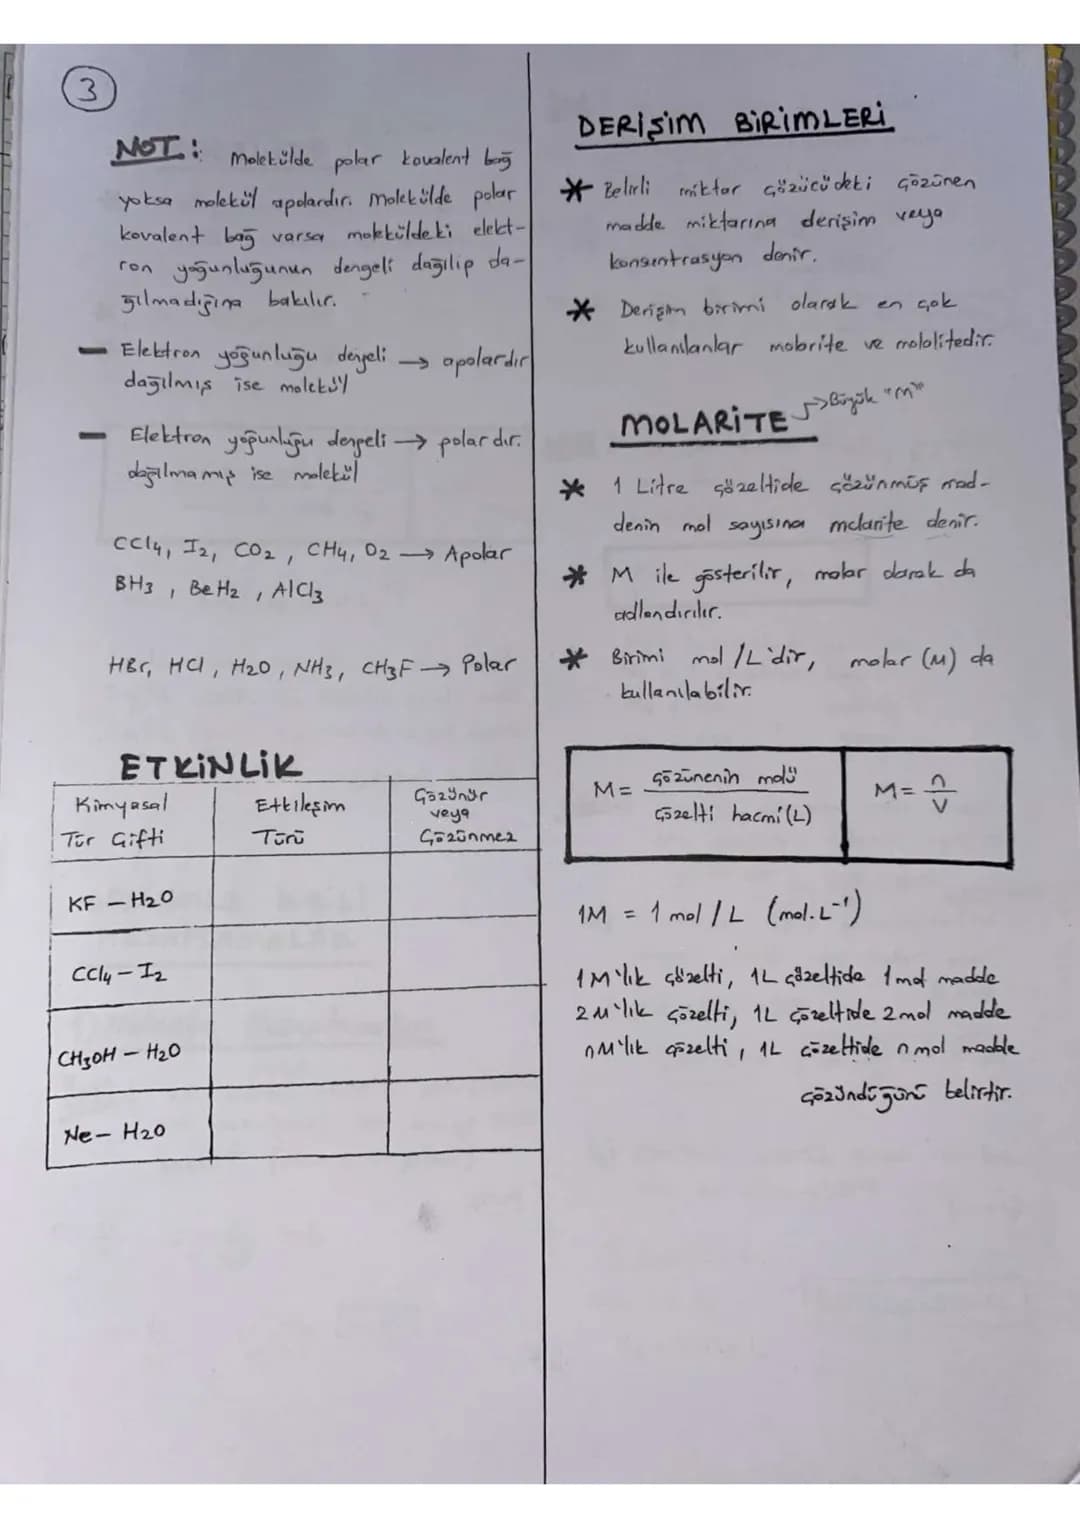 3
NOT: Molekülde polar kovalent bağ
yoksa molekül apolardır. Molekülde polar
kovalent bağ varsa moleküldeki elekt-
ron yoğunluğunun dengeli dağılıp da-
ğılmadığına bakılır.
— Elektron yoğunluğu dengeli → apolardır
dağılmış ise molekül
— Elektron yoğunluğu dengeli → polardır.
dağılmamış ise molekül
CCl4, I2, CO2, CH4, O2 → Apolar
BH3, BeH2, AlCl3
HBr, HCl, H2O, NH3, CH3F → Polar
ETKİNLİK
Kimyasal Tür Çifti
Etkileşim Türü
Çözünür veya Çözünmez
KF – H2O
CCl4 – I2
CH3OH – H2O
Ne – H2O
DERİŞİM BİRİMLERİ
* Belirli miktar çözücüdeki çözünen
madde miktarına derişim veya
konsantrasyon denir.
* Derişim birimi olarak en çok
kullanılanlar molarite ve molalitedir.
MOLARİTE → Büyük "M"
* 1 Litre çözeltide çözünmüş mad-
denin mol sayısına molarite denir.
* M ile gösterilir, molar olarak da
adlandırılır.
* Birimi mol/L'dir, molar (M) da
kullanılabilir.
M = Çözünenin molü / Çözelti hacmi (L)
M = n / V
1M = 1 mol/L (mol.L⁻¹)
1M'lık çözelti, 1L çözeltide 1mol madde
2M'lık çözelti, 1L çözeltide 2mol madde
nM'lık çözelti, 1L çözeltide n mol madde
çözündüğünü belirtir.